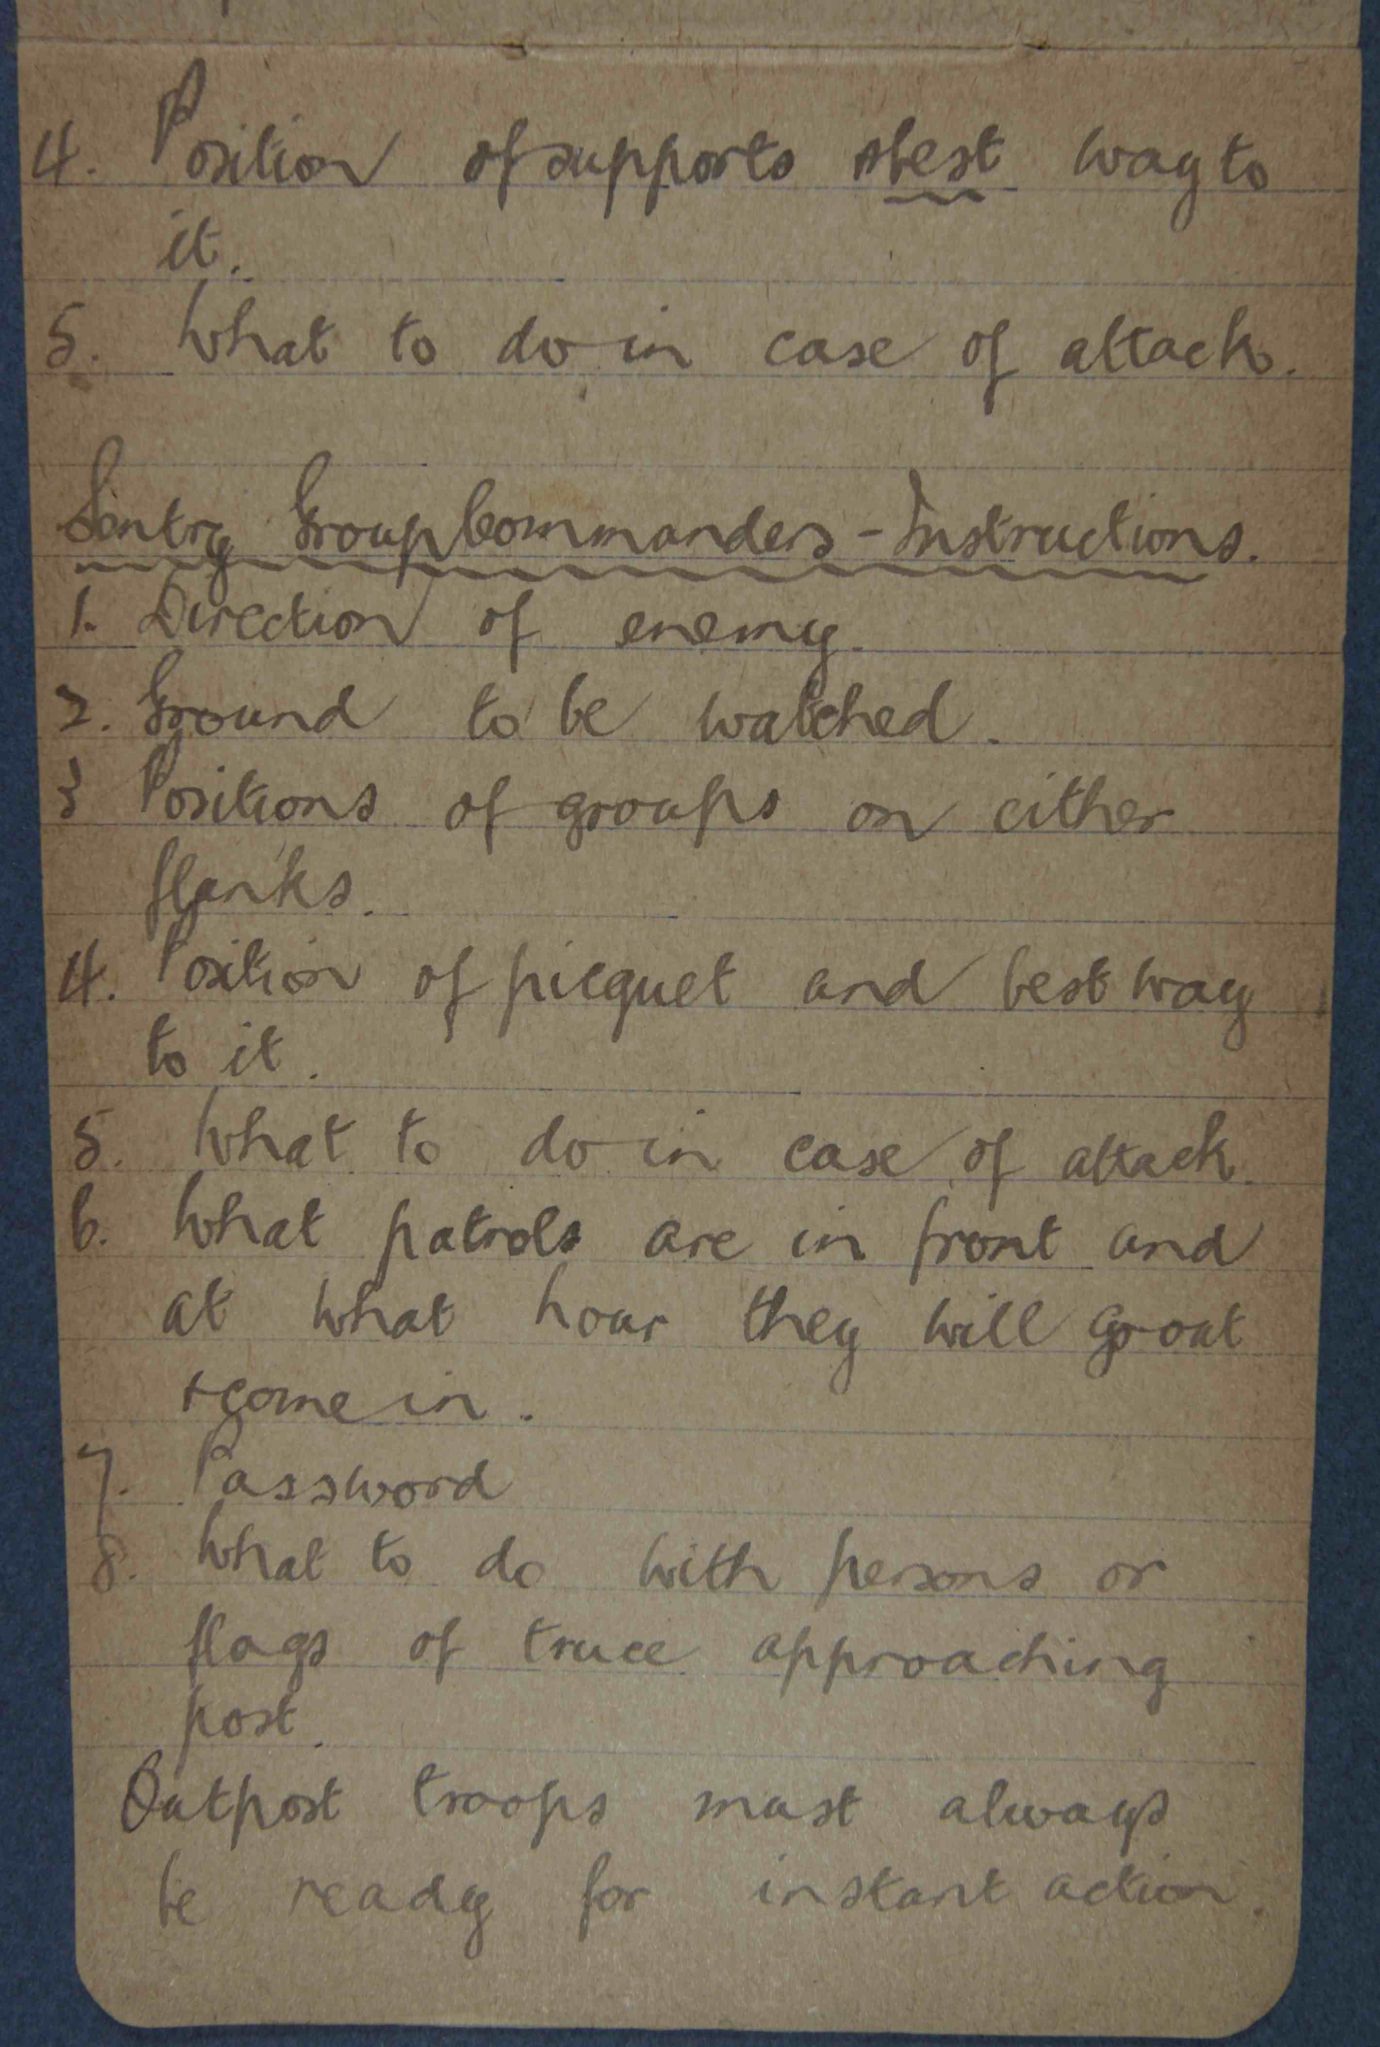 4. Position of supports & best way to
it.
5. What to do in case of attack.
Sentry Group Commanders - Instructions.
1. Direction of enemy.
2. Ground to be watched.
3 Positions of groups on either
flanks.
4. Position of picquet and best way
to it.
5. What to do in case of attack.
6. What patrols are in front and
at what hour they will go out
+ come in.
7. Password
8. What to do with persons or
flags of truce approaching
post.
Outpost troops must always
be ready for instant action.